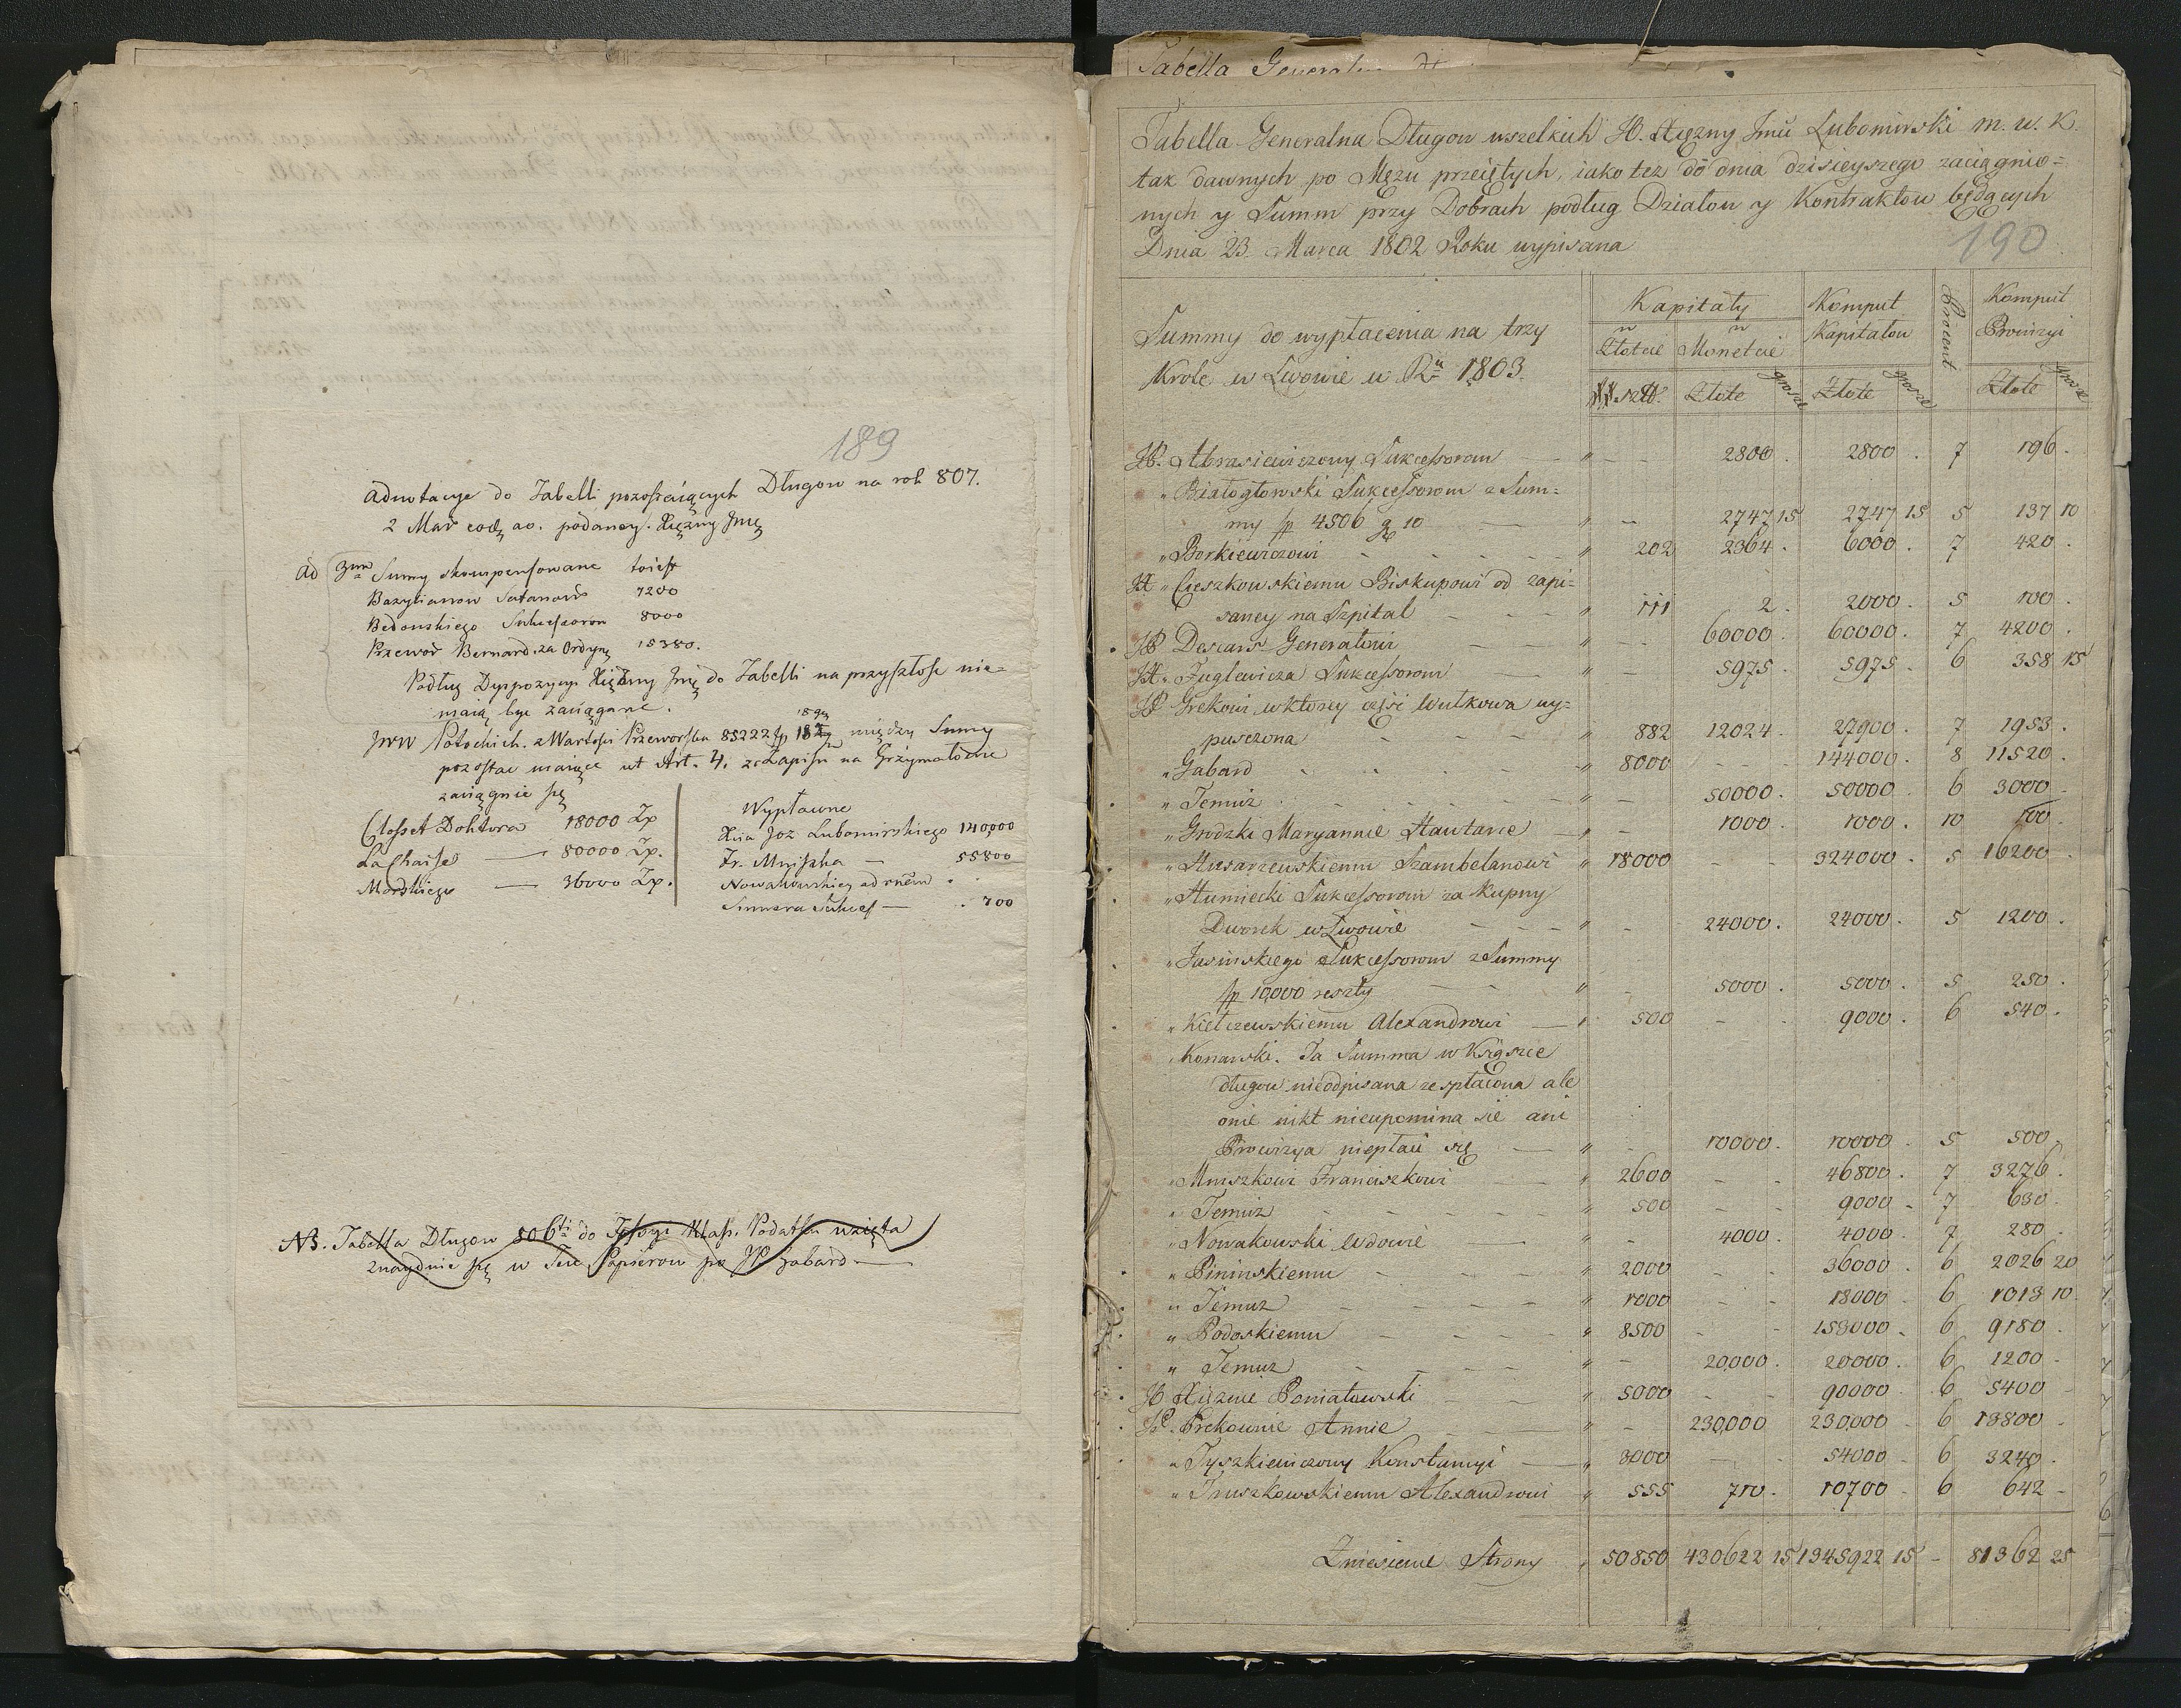 189
Adnotacye do Tabelli pozostaiących Długow na rok 807.
2 Mar eodę ao. podaney. Xiężny Jmę
Ad 3um Sumy skompensowane toiest
Bazylianow Satanow 7200
Bedonskiego Sukcessorow 8000
Przewor Bernard. za Ordynę 15380.
Podług Dyspozycyi Xiężny Jmę do Tabelli na przyszłość nie=
maią byc zaciągane.
JWW Potockich. z Wartości Przeworska 85222 fp 18 gr między Sumy
pozostac maiące ut Art. 4. z Zapisu na Grzymałowie
zaciągnie się
Closset Doktora 18000 Zp
La Chaise — 80000 Zp.
Morskiego — 36000 Zp.
Wypłacone
Xcia Joz Lubomirskiego 140,000
Fr. Mniszka — 55800
Nowakowskiey
Sukces — . 700
NB. Tabella Długow 806ti do Klas. Podatku wzięta
znayduie się w Papierow po JP Gabard —
Tabella Generalna
Tabella Generalna Długow wszelkich JO. Xiężny Jmci Lubomirski m. w. K.
tak dawnych po Mężu przeiętych, iako tez do dnia dzisieyszego zaciągnio=
nych y Summ przy Dobrach podług Działow y Kontraktow będących
Dnia 23. Marca 1802 Roku wypisana
190
Summy do wypłacenia na trzy
Krole w Lwowie w Rũ 1803.
Kapitały Komput Kapitałow Procent Komput Prowizyi
w Złocie w Monecie
złł. Złote grosze Złote grosze Złote grosze
JP. Abrasiewiczowy Sukcessorom — " — — 2800 . 2800 . 7 196 .
" Białogłowski Sukcessorom z Sum=
my fp 4506 g 10 — " — 2747 15 2747 15 5 137 10
" Borkiewiczowi - - - - - " 202 2364 . 6000 . 7 420 .
JX " Cieszkowskiemu Biskupowi od zapi=
saney na Szpital - - - " 111 2 . 2000 . 5 100 .
JP Descars Generałowi - - - " — 60000 . 60000 . 7 4200 .
JX. Fuglewicza Sukcessorom — " — 5975 . 5975 . 6 358 15
JP Grekowi w ktorey częsc Wulkowa wy=
puszczona - - - - " 882 12024 . 27900 . 7 1953 .
" Gabard - - - - " 8000 - - - 144000 . 8 11520 .
" Temuż - - - - - " — 50000 . 50000 . 6 3000 .
" Grodzki Maryannie — " — 1000 . 1000 . 10 100 .
" Husarzewskiemu Szambelanowi " 18000 - - 324000 . 5 16200 .
" Humiecki Sukcessorom za kupny
Dworek w Lwowie - - - " - 24000 . 24000 . 5 1200 .
" Jasinskiego Sukcessorom z Summy
fp 10,000 reszty - - - " - 5000 . 5000 . 5 250 .
" Kiełczewskiemu Alexandrowi — " 500 - - 9000 . 6 540 .
" Konarski. Ta Summa w Xiążce
długow nieodpisana ze spłacona ale
onie nikt nieupomina się ani
Prowizya niepłaci się — " - 10000 . 10000 . 5 500 .
" Mniszkowi Franciszkowi — " 2600 - - 46800 . 7 3276 .
" Temuz - - - - " 500 - - 9000 - 7 630 .
" Nowakowski Wdowie — " - 4000 . 4000 . 7 280 .
" Pininskiemu - - - - " 2000 - - 36000 . 6 2026 20
" Temuz - - - - " 1000 - - 18000 . 6 1013 10
" Podoskiemu - - - - " 8500 - - 153000 . 6 9180 .
" Temuz - - - - " - 20,000 . 20000 . 6 1200 .
JO Xiężnie Poniatowski - - - " 5000 - - 90000 . 6 5400 .
JP. Prekownie Annie - - - " - 230,000 230,000 - 6 13800 -
" Tyszkiewiczowy Konstancyi — " 3000 - - 54000 - 6 3240 .
" Truszkowskiemu Alexandrowi " 555 710 . 10700 - 6 642 -
Zniesienie Strony . 50850 430622 15 1345922 15 - 81362 25